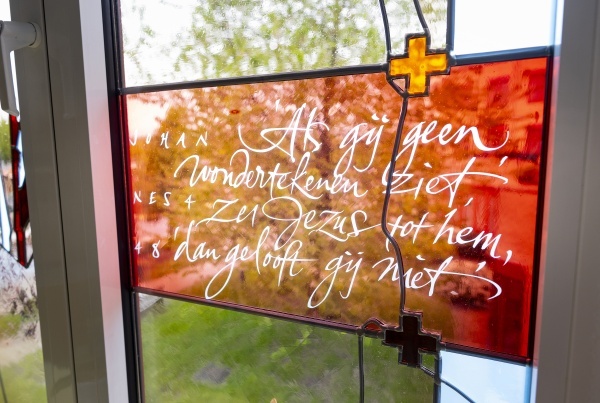 JOHAN
NES 4
48
'Als gij geen
wondertekenen ziet,'
zei Jezus tot hem,
'dan gelooft gij niet.'